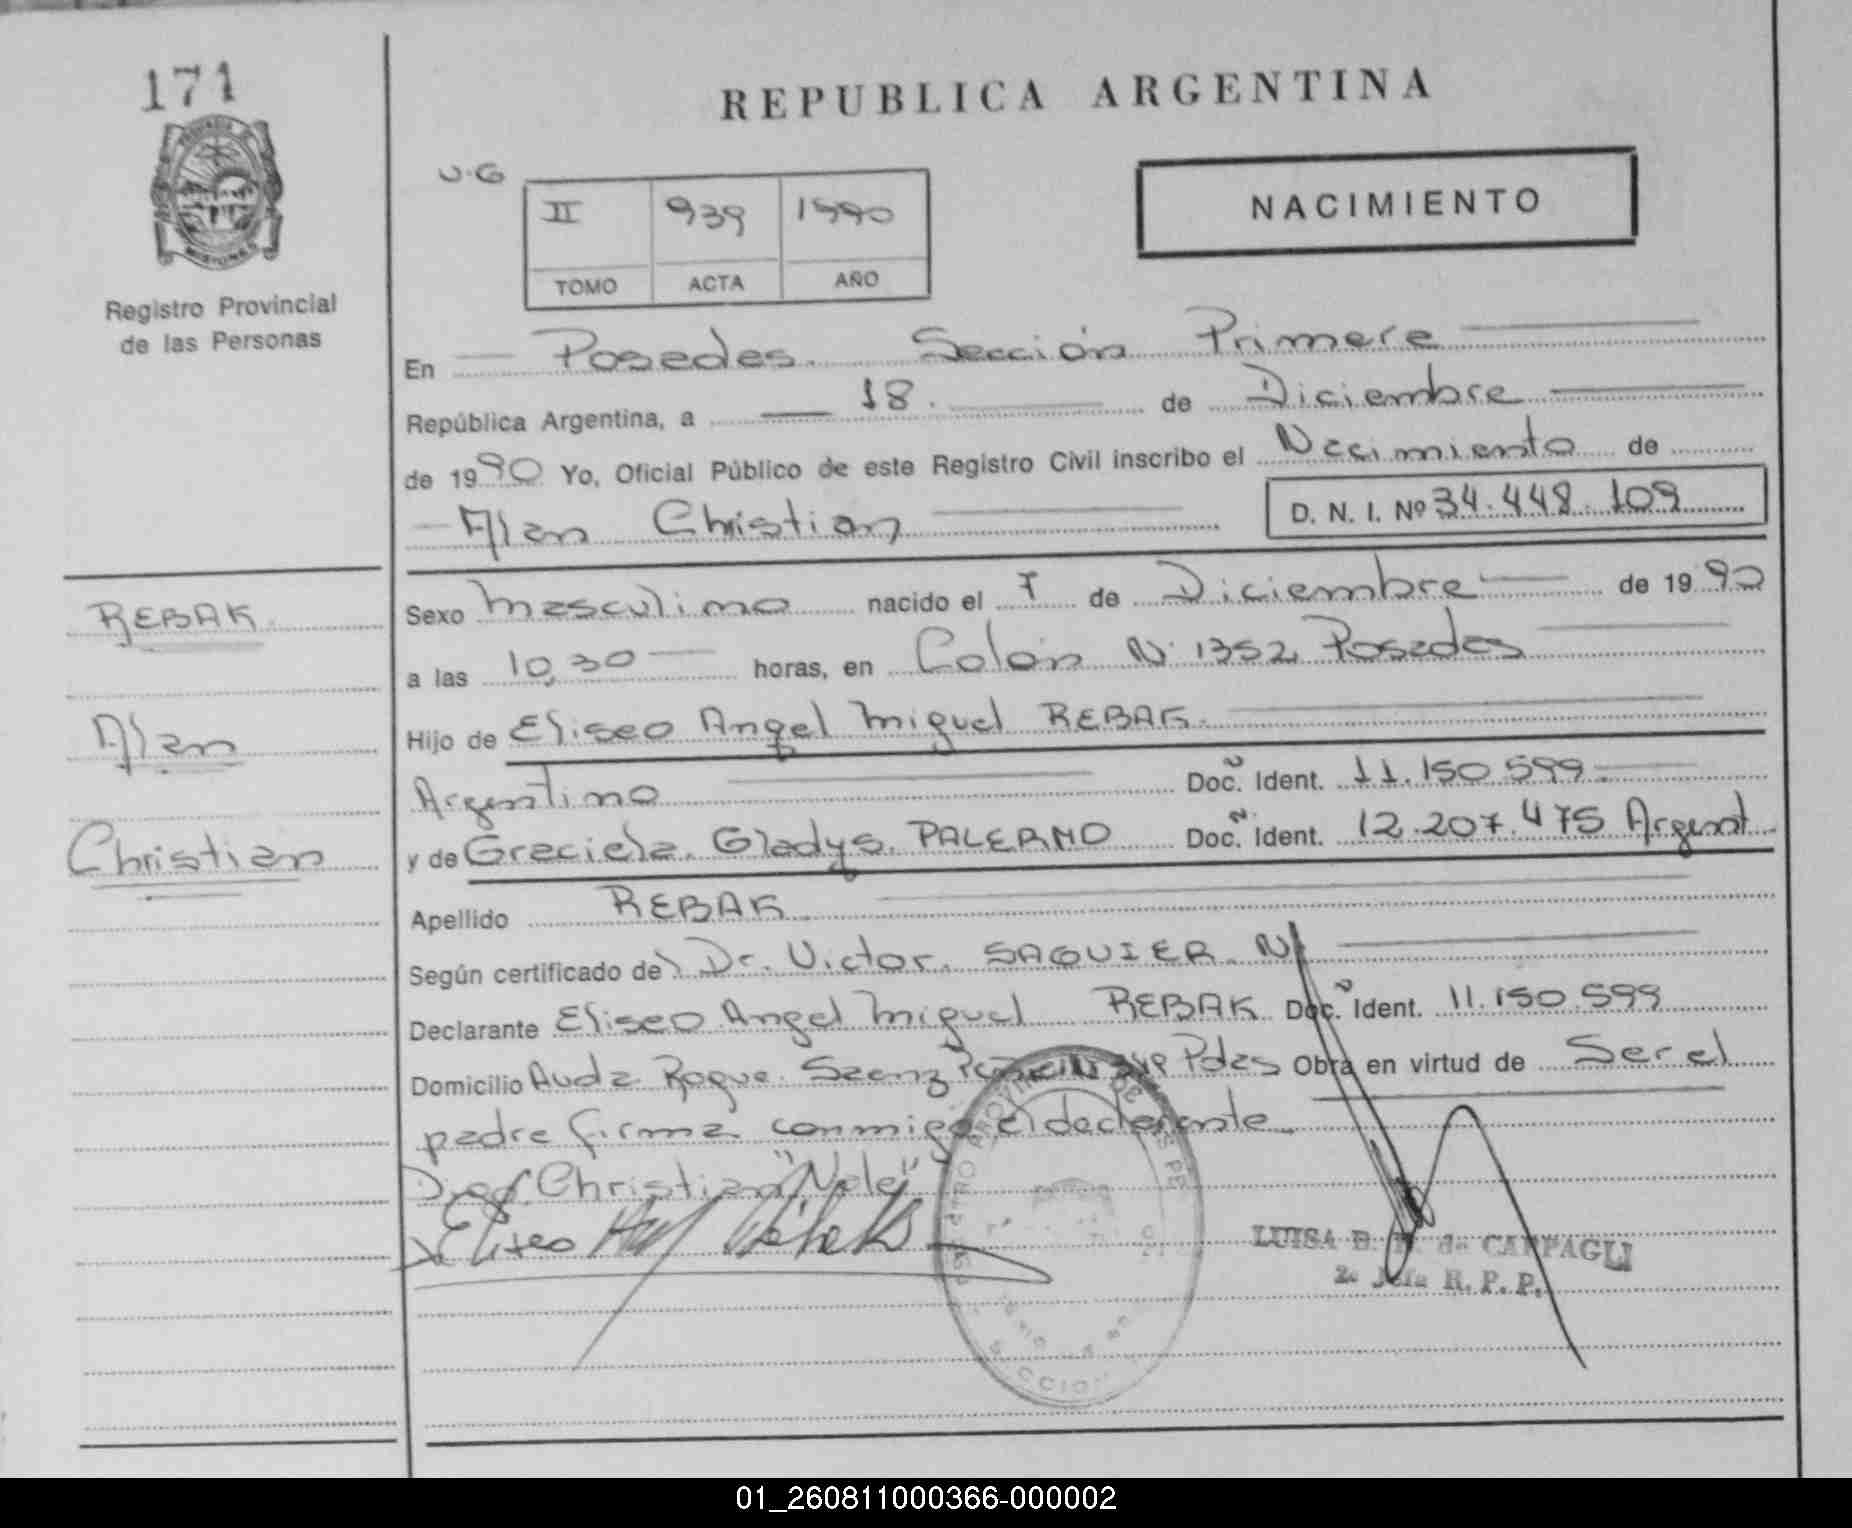 171
REPUBLICA ARGENTINA
U.G
II 939 1990
TOMO ACTA AÑO
NACIMIENTO
Registro Provincial
de las Personas
En Posadas. Sección Primera
República Argentina, a 18. de Diciembre
de 1990 Yo, Oficial Público de este Registro Civil inscribo el Nacimiento de
Alan Christian D. N. I. Nº 34.448.109
Sexo Masculino nacido el 7 de Diciembre de 1990
a las 10,30 horas, en Colón Nº 1352 Posadas
Hijo de Eliseo Angel Miguel REBAK.
Argentino Doc. Ident. 11.150.599
y de Graciela Gladys PALERMO Doc. Ident. 12.207.475 Argent
Apellido REBAK
Según certificado del Dr. Victor SAGUIER N
Declarante Eliseo Angel Miguel REBAK Doc. Ident. 11.150.599
Domicilio Avda Roque Saenz Pdas Obra en virtud de Ser el
padre firma conmigo el declarante.
Christian "Vale"
REBAK
Alan
Christian
LUISA B. de CARPAGLI
2a Jefa R. P. P.
01_260811000366-000002